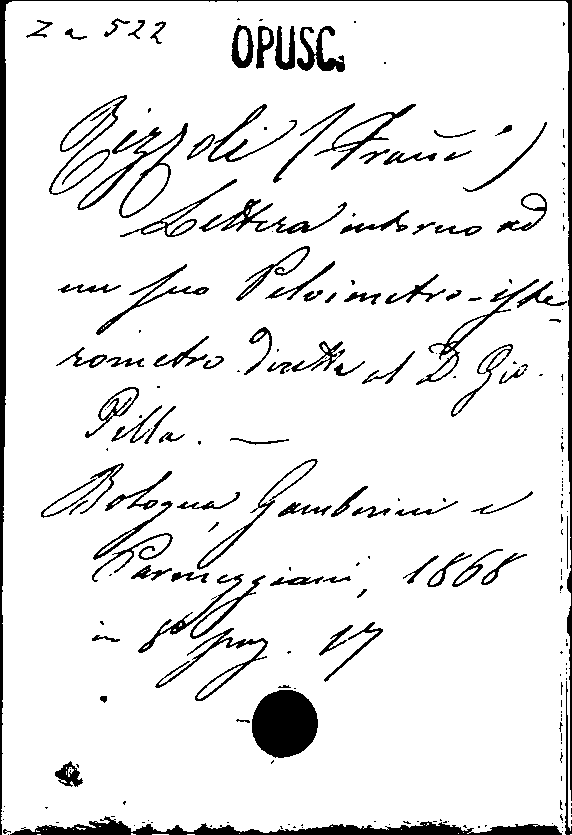 Za 522
OPUSC.
Rizzoli (Franc.)
Lettera intorno ad
un suo Pelvimetro-iste-
rometro diretta al D. Gio.
Pilla. —
Bologna, Gamberini e
Parmeggiani, 1868
in 8° pag. 17